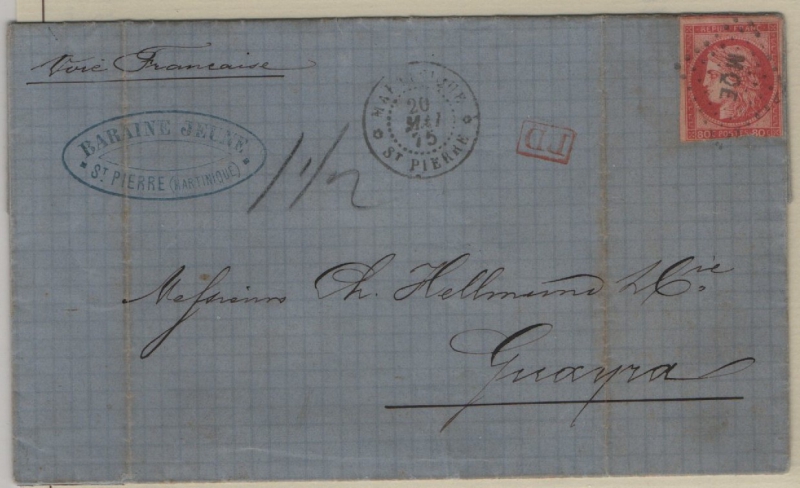 Voie Francaise
BARAINE JEUNE
* ST PIERRE (MARTINIQUE) *
MARTINIQUE
20
MAI
75
ST PIERRE
PD
REPUB. FRANC.
MQE
80 POSTES 80 C
1 1/2
Messieurs Ch. Hellmund & Cie.
Guayra